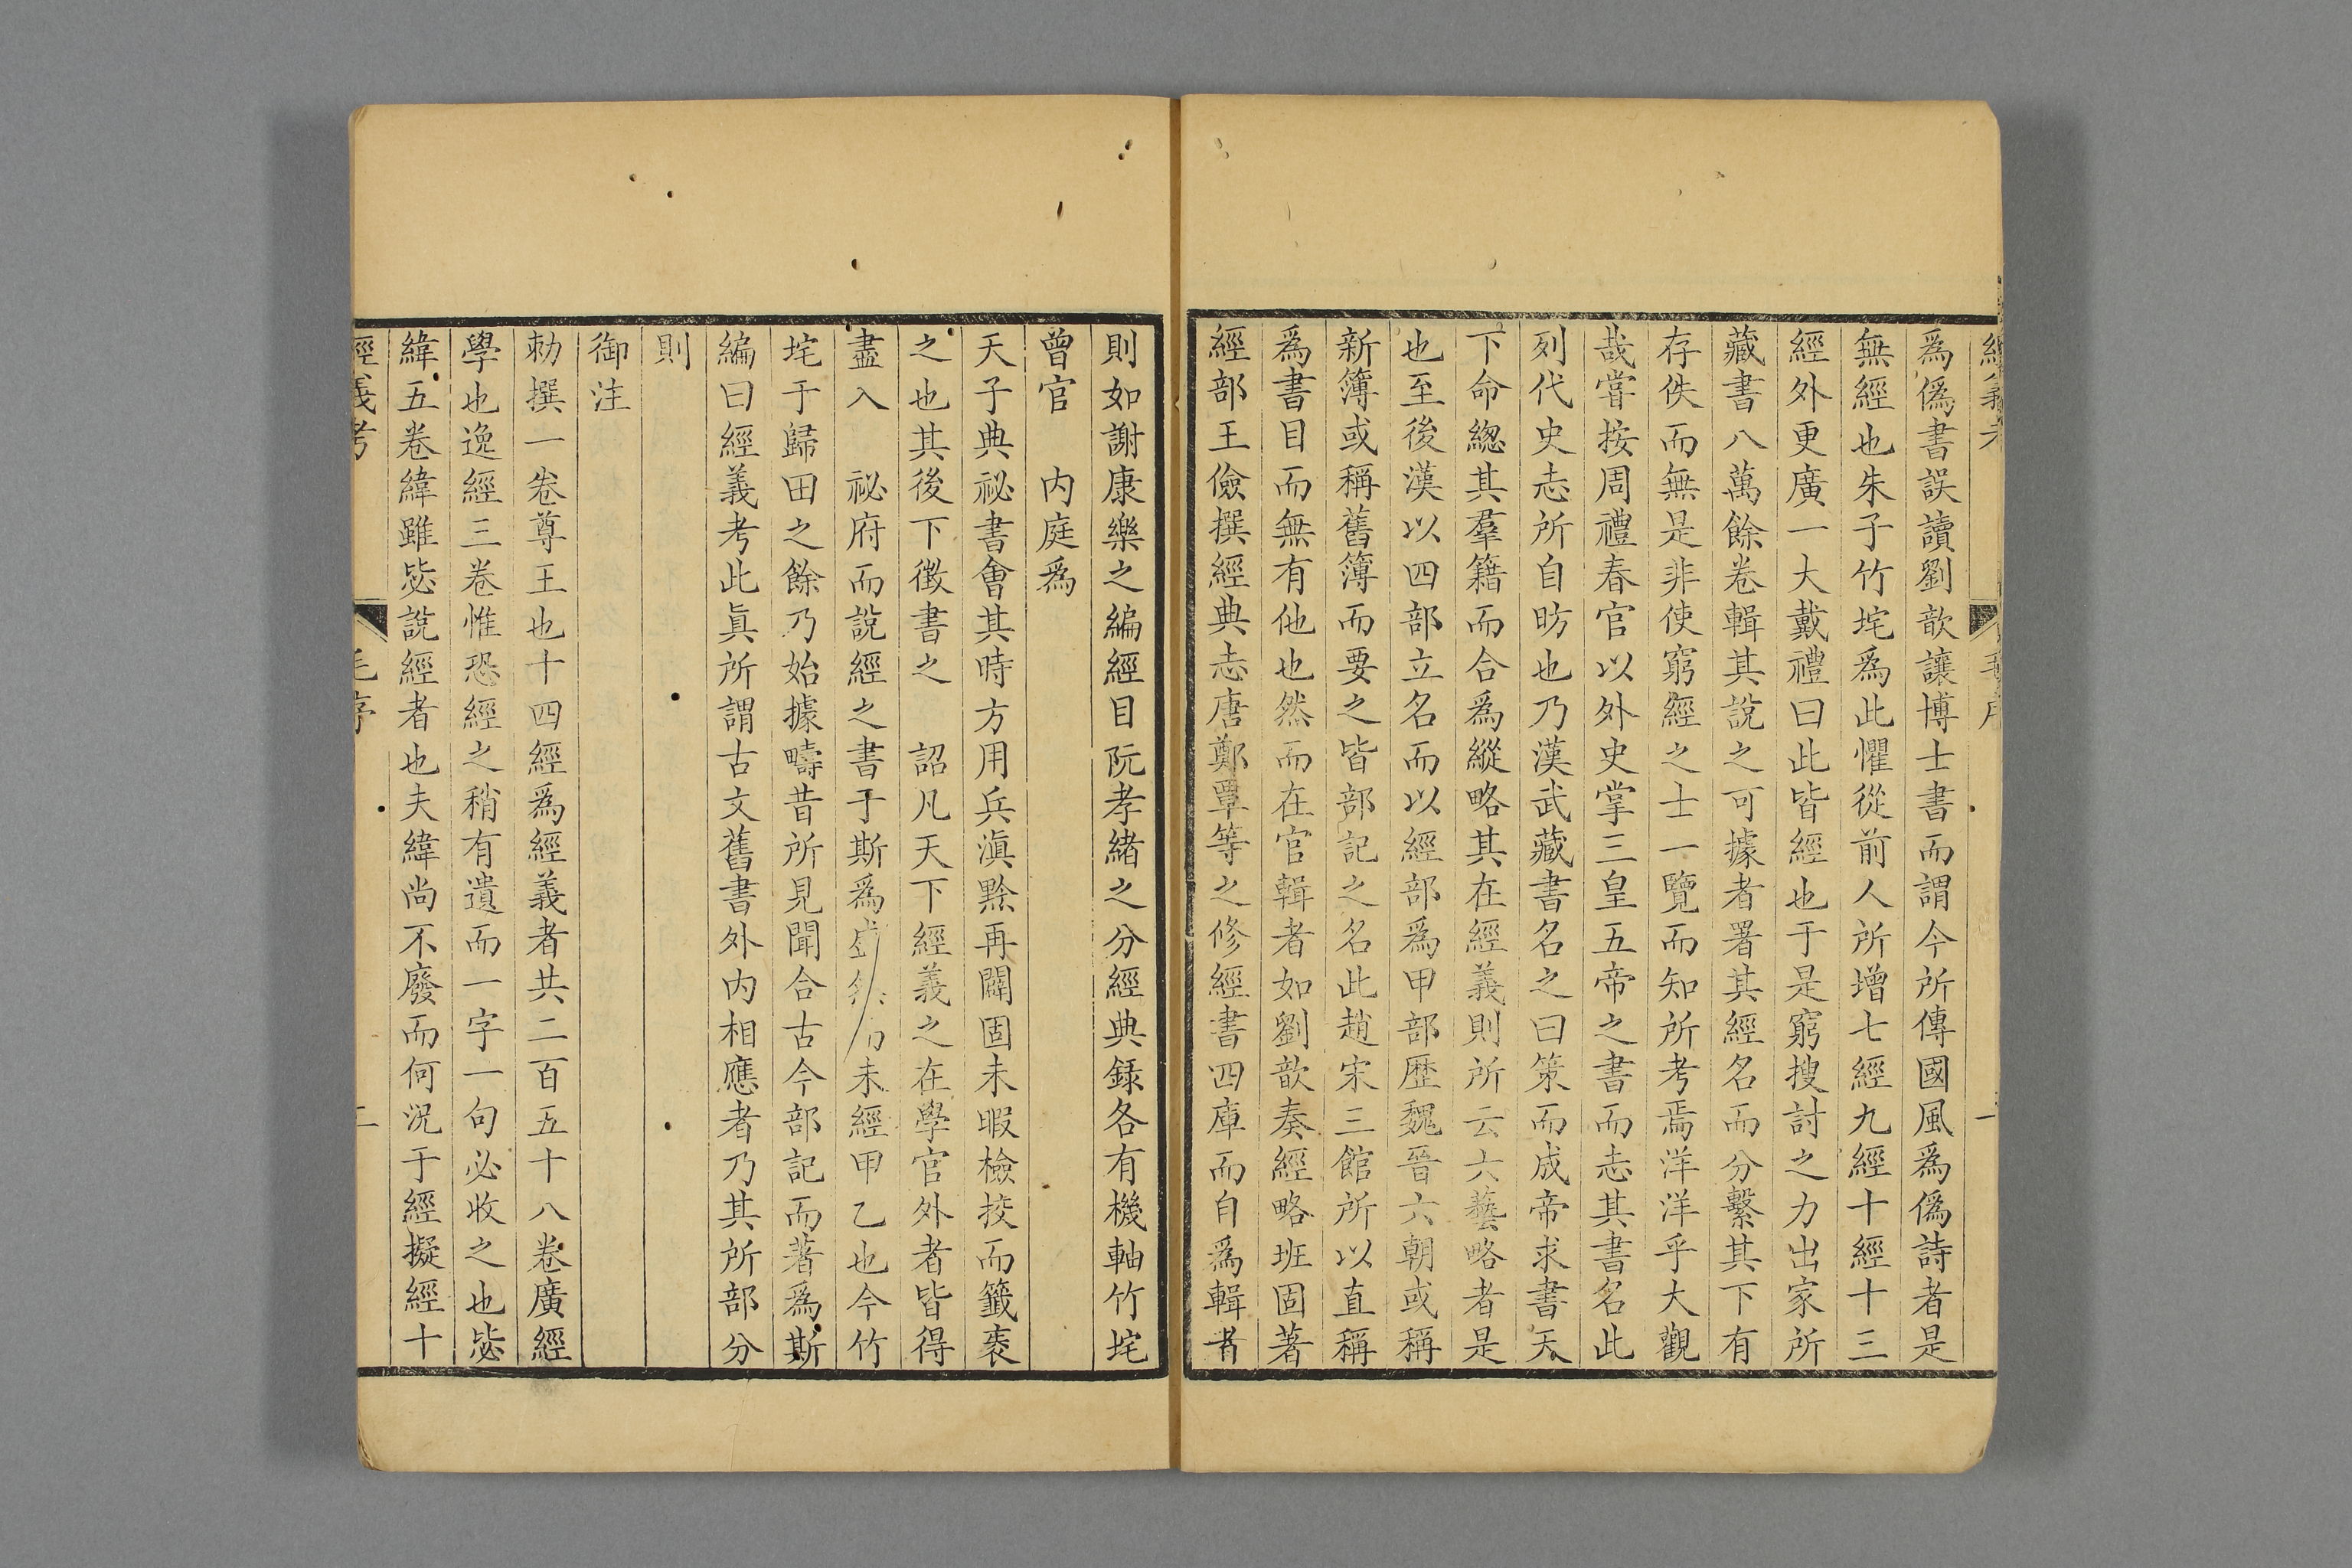 爲僞書誤讀劉歆讓博士書而謂今所傳國風爲僞詩者是
無經也朱子竹垞爲此懼從前人所增七經九經十經十三
經外更廣一大戴禮曰此皆經也于是窮搜討之力出家所
藏書八萬餘卷輯其說之可據者署其經名而分繫其下有
存佚而無是非使窮經之士一覽而知所考焉洋洋乎大觀
哉嘗按周禮春官以外史掌三皇五帝之書而志其書名此
列代史志所自昉也乃漢武藏書名之曰策而成帝求書天
下命緫其羣籍而合爲縱略其在經義則所云六藝略者是
也至後漢以四部立名而以經部爲甲部歷魏晉六朝或稱
新簿或稱舊簿而要之皆部記之名此趙宋三館所以直稱
爲書目而無有他也然而在官輯者如劉歆奏經略班固著
經部王儉撰經典志唐鄭覃等之修經書四庫而自爲輯者
則如謝康樂之編經目阮孝緒之分經典錄各有機軸竹垞
曾官 内庭爲
天子典祕書會其時方用兵滇黔再闢固未暇檢挍而籤袠
之也其後下徵書之 詔凡天下經義之在學官外者皆得
盡入 祕府而說經之書于斯爲盛未經甲乙也今竹
垞于歸田之餘乃始據疇昔所見聞合古今部記而著爲斯
編曰經義考此眞所謂古文舊書外内相應者乃其所部分
則
御注
勅撰一卷尊王也十四經爲經義者共二百五十八卷廣經
學也逸經三卷惟恐經之稍有遺而一字一句必收之也毖
緯五卷緯雖毖說經者也夫緯尚不廢而何況于經擬經十
經義考 毛序 二